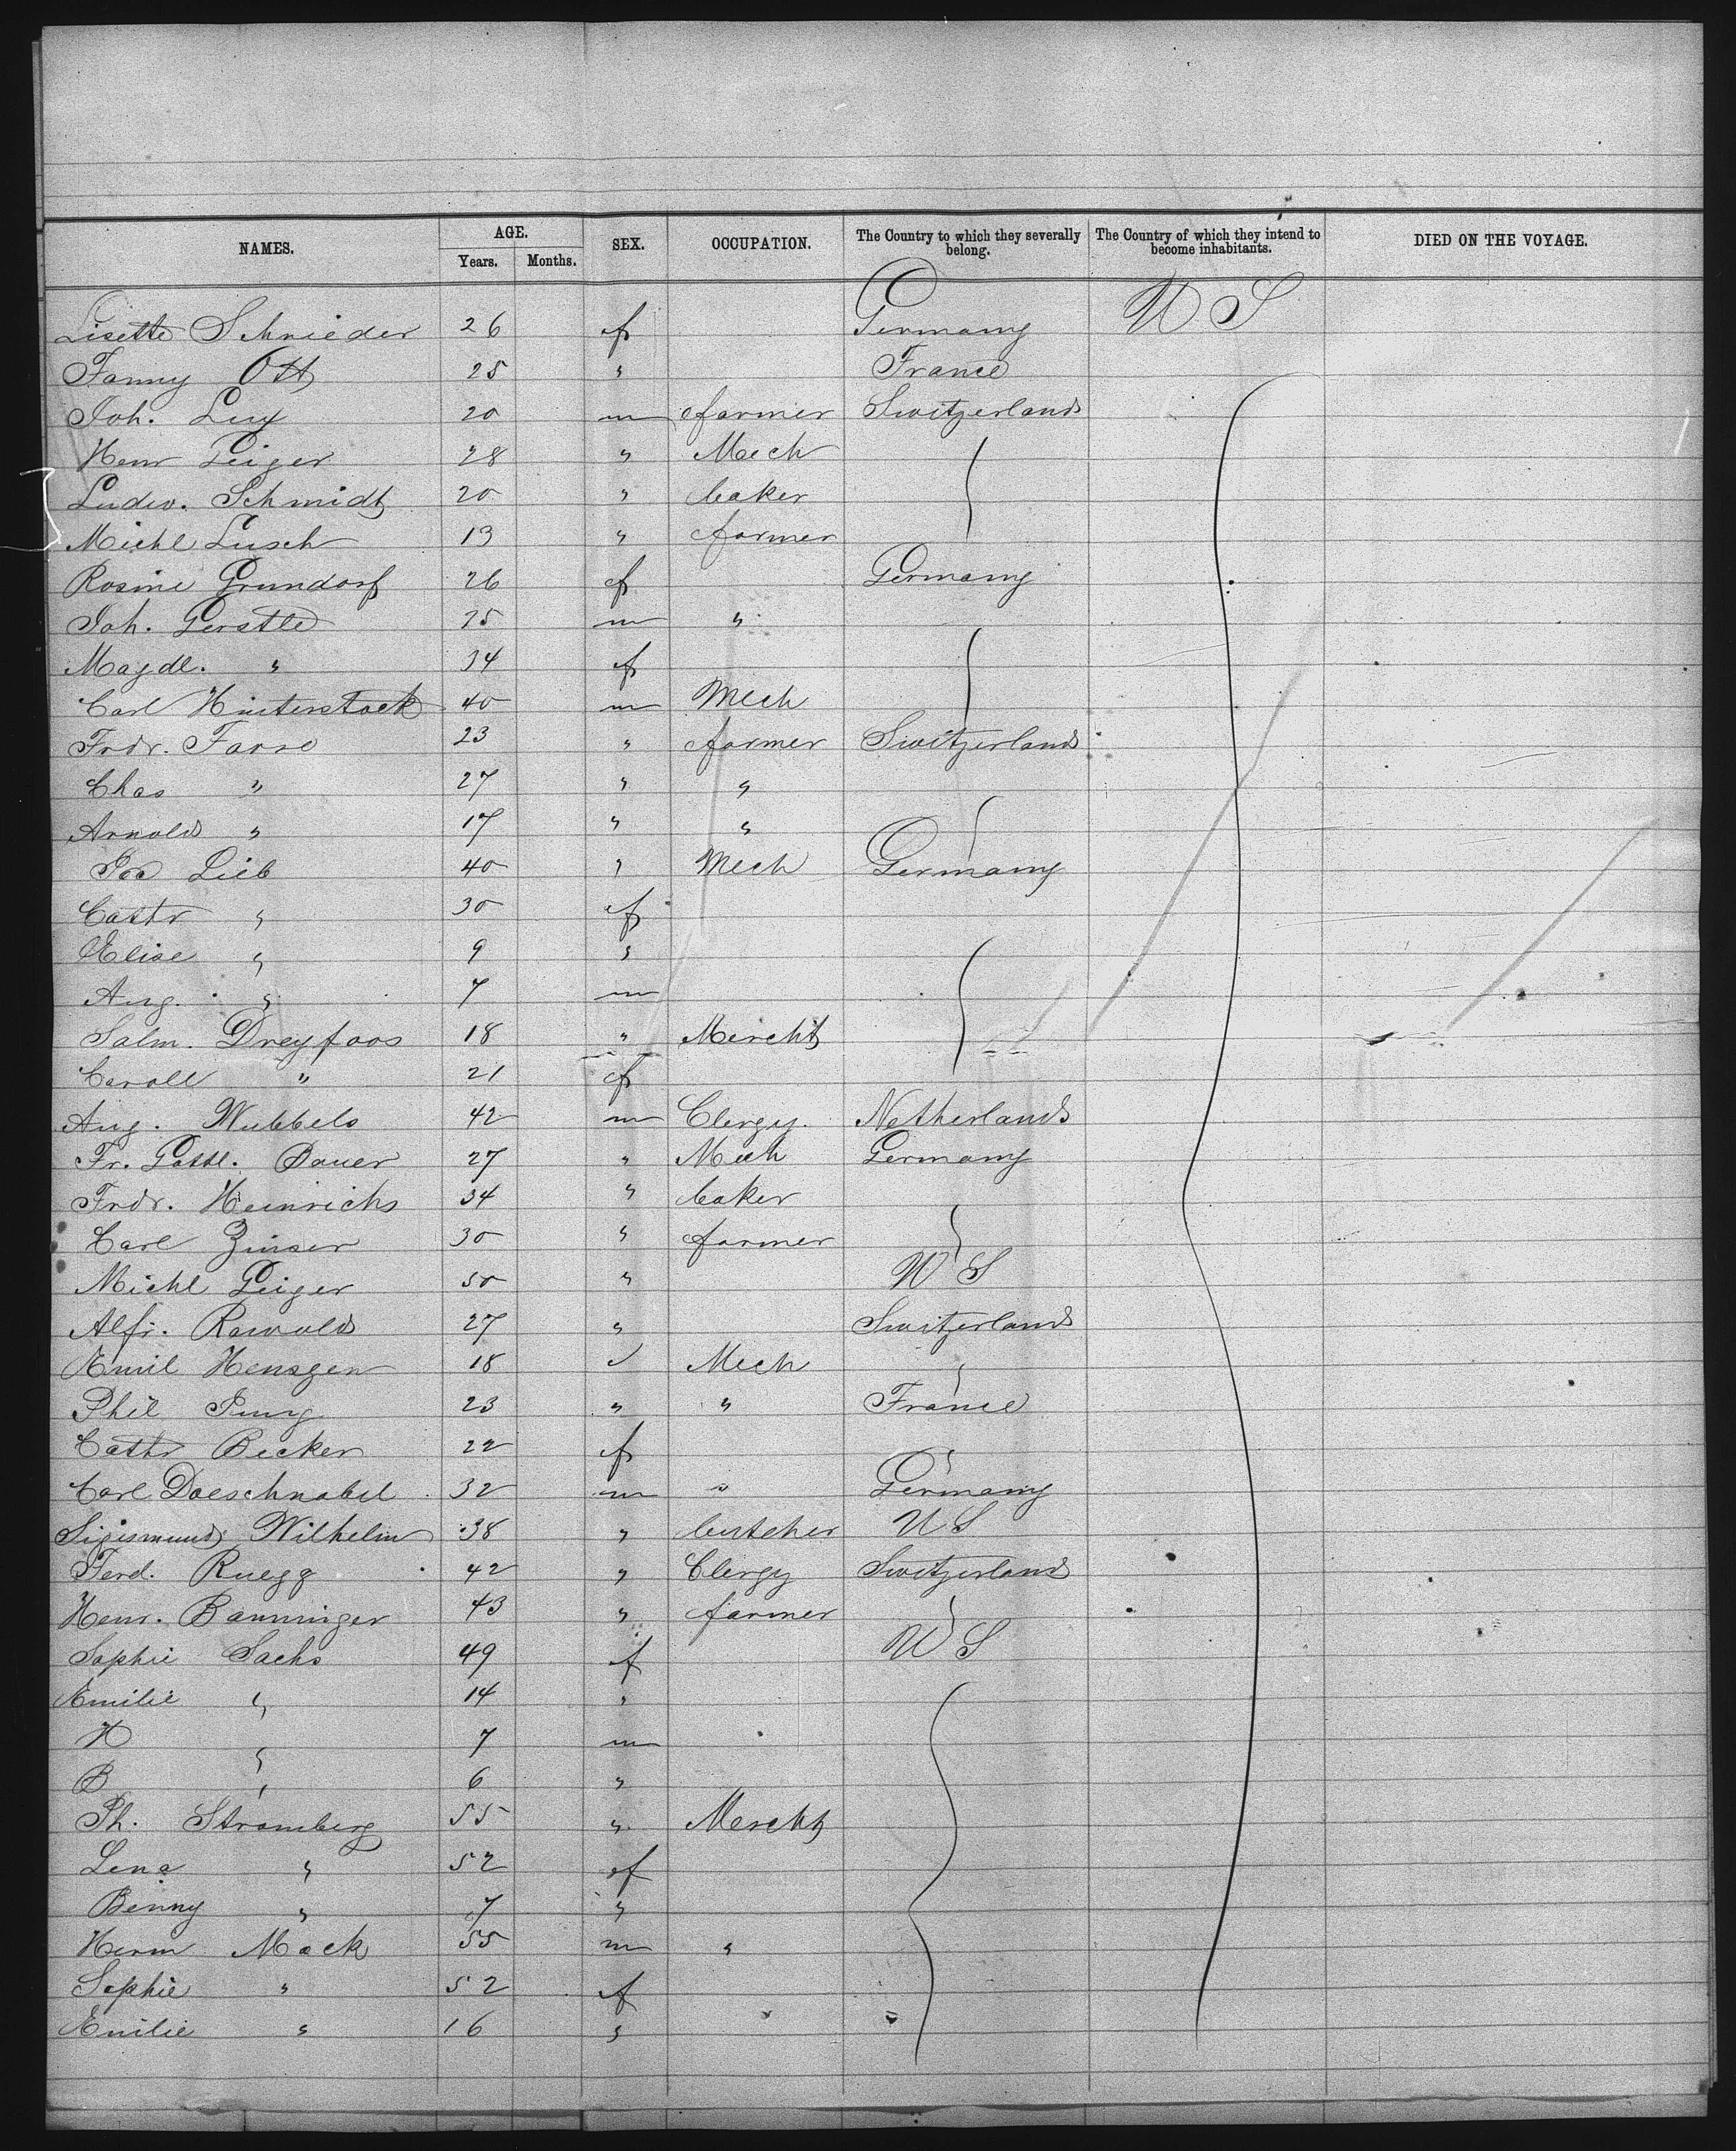 NAMES. AGE. SEX. OCCUPATION. The Country to which they severally belong. The Country of which they intend to become inhabitants. DIED ON THE VOYAGE.
Years. Months.
Lisette Schnieder 26 f Germany U S
Fanny Ott 25 " France
Joh. Lux 20 m farmer Switzerland
Henr Geiger 28 " Mech
Ludw. Schmidt 20 " baker
Michl Lusch 13 " farmer
Rosine Grundorf 26 f Germany
Joh. Gerstle 25 m "
Magdl. " 34 f
Carl Hinterstock 40 m Mech
Frdr. Farre 23 " farmer Switzerland
Chas " 27 " "
Arnold " 17 " "
Jos Lieb 40 " Mech Germany
Cathr " 30 f
Elise " 9 "
Aug. " 7 m
Salm. Dreyfoos 18 " Mercht
Caroll " 21 f
Aug. Wubbels 42 m Clergy. Netherlands
Fr. Gottl. Bauer 27 " Mech Germany
Frdr. Heinrichs 34 " baker
Carl Zinser 30 " farmer
Michl Geiger 50 " U S
Alfr. Rawald 27 " Switzerland
Emil Hensgen 18 " Mech
Phil Jung 23 " " France
Cathr Becker 22 f
Carl Doeschnabel 32 m " Germany
Sigismund Wilhelm 38 " butcher U S
Ferd. Ruegg 42 " Clergy Switzerland
Henr. Banninger 43 " farmer
Sophie Sachs 49 f U S
Emilie " 14 "
H " 7 m
B " 6 "
Ph. Stromberg 55 " Mercht
Lena " 52 f
Benny " 7 "
Herm Mack 55 m "
Sophie " 52 f
Emilie " 16 "